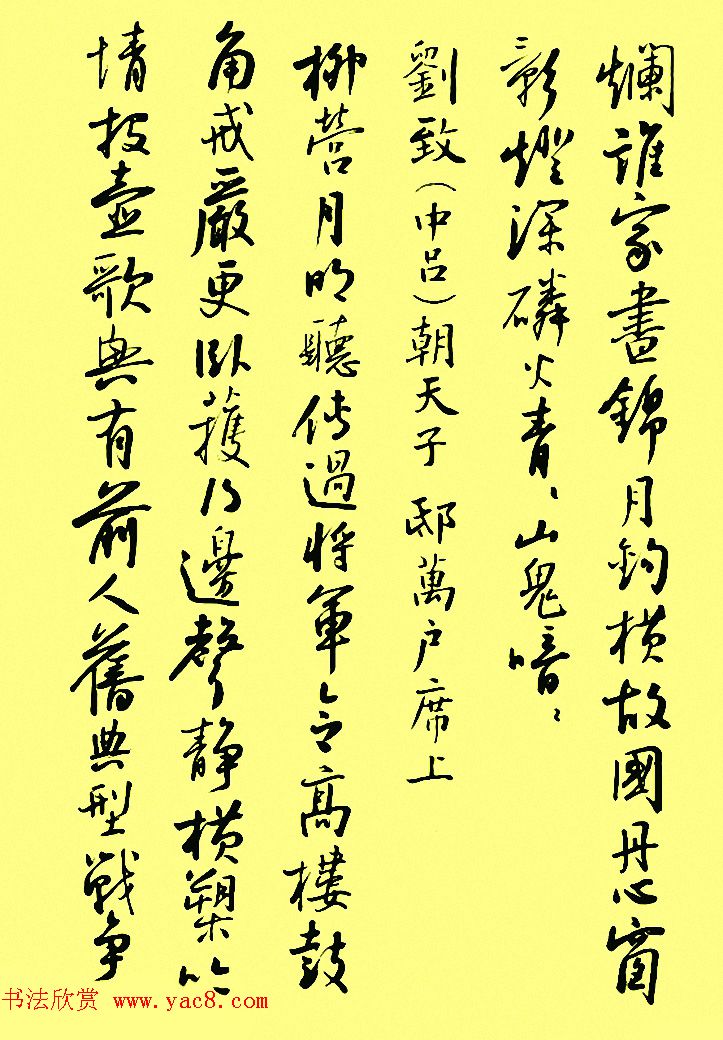 爛誰家晝錦月鉤橫故國丹心窗
影燈深磷火青、山鬼喑、
劉致（中呂）朝天子 邸萬户席上
柳營月明聽傳過將軍令高樓鼓
角戒嚴更臥護得邊聲靜橫槊吟
情投壺歌興有前人舊典型戰争
书法欣赏 www.yac8.com